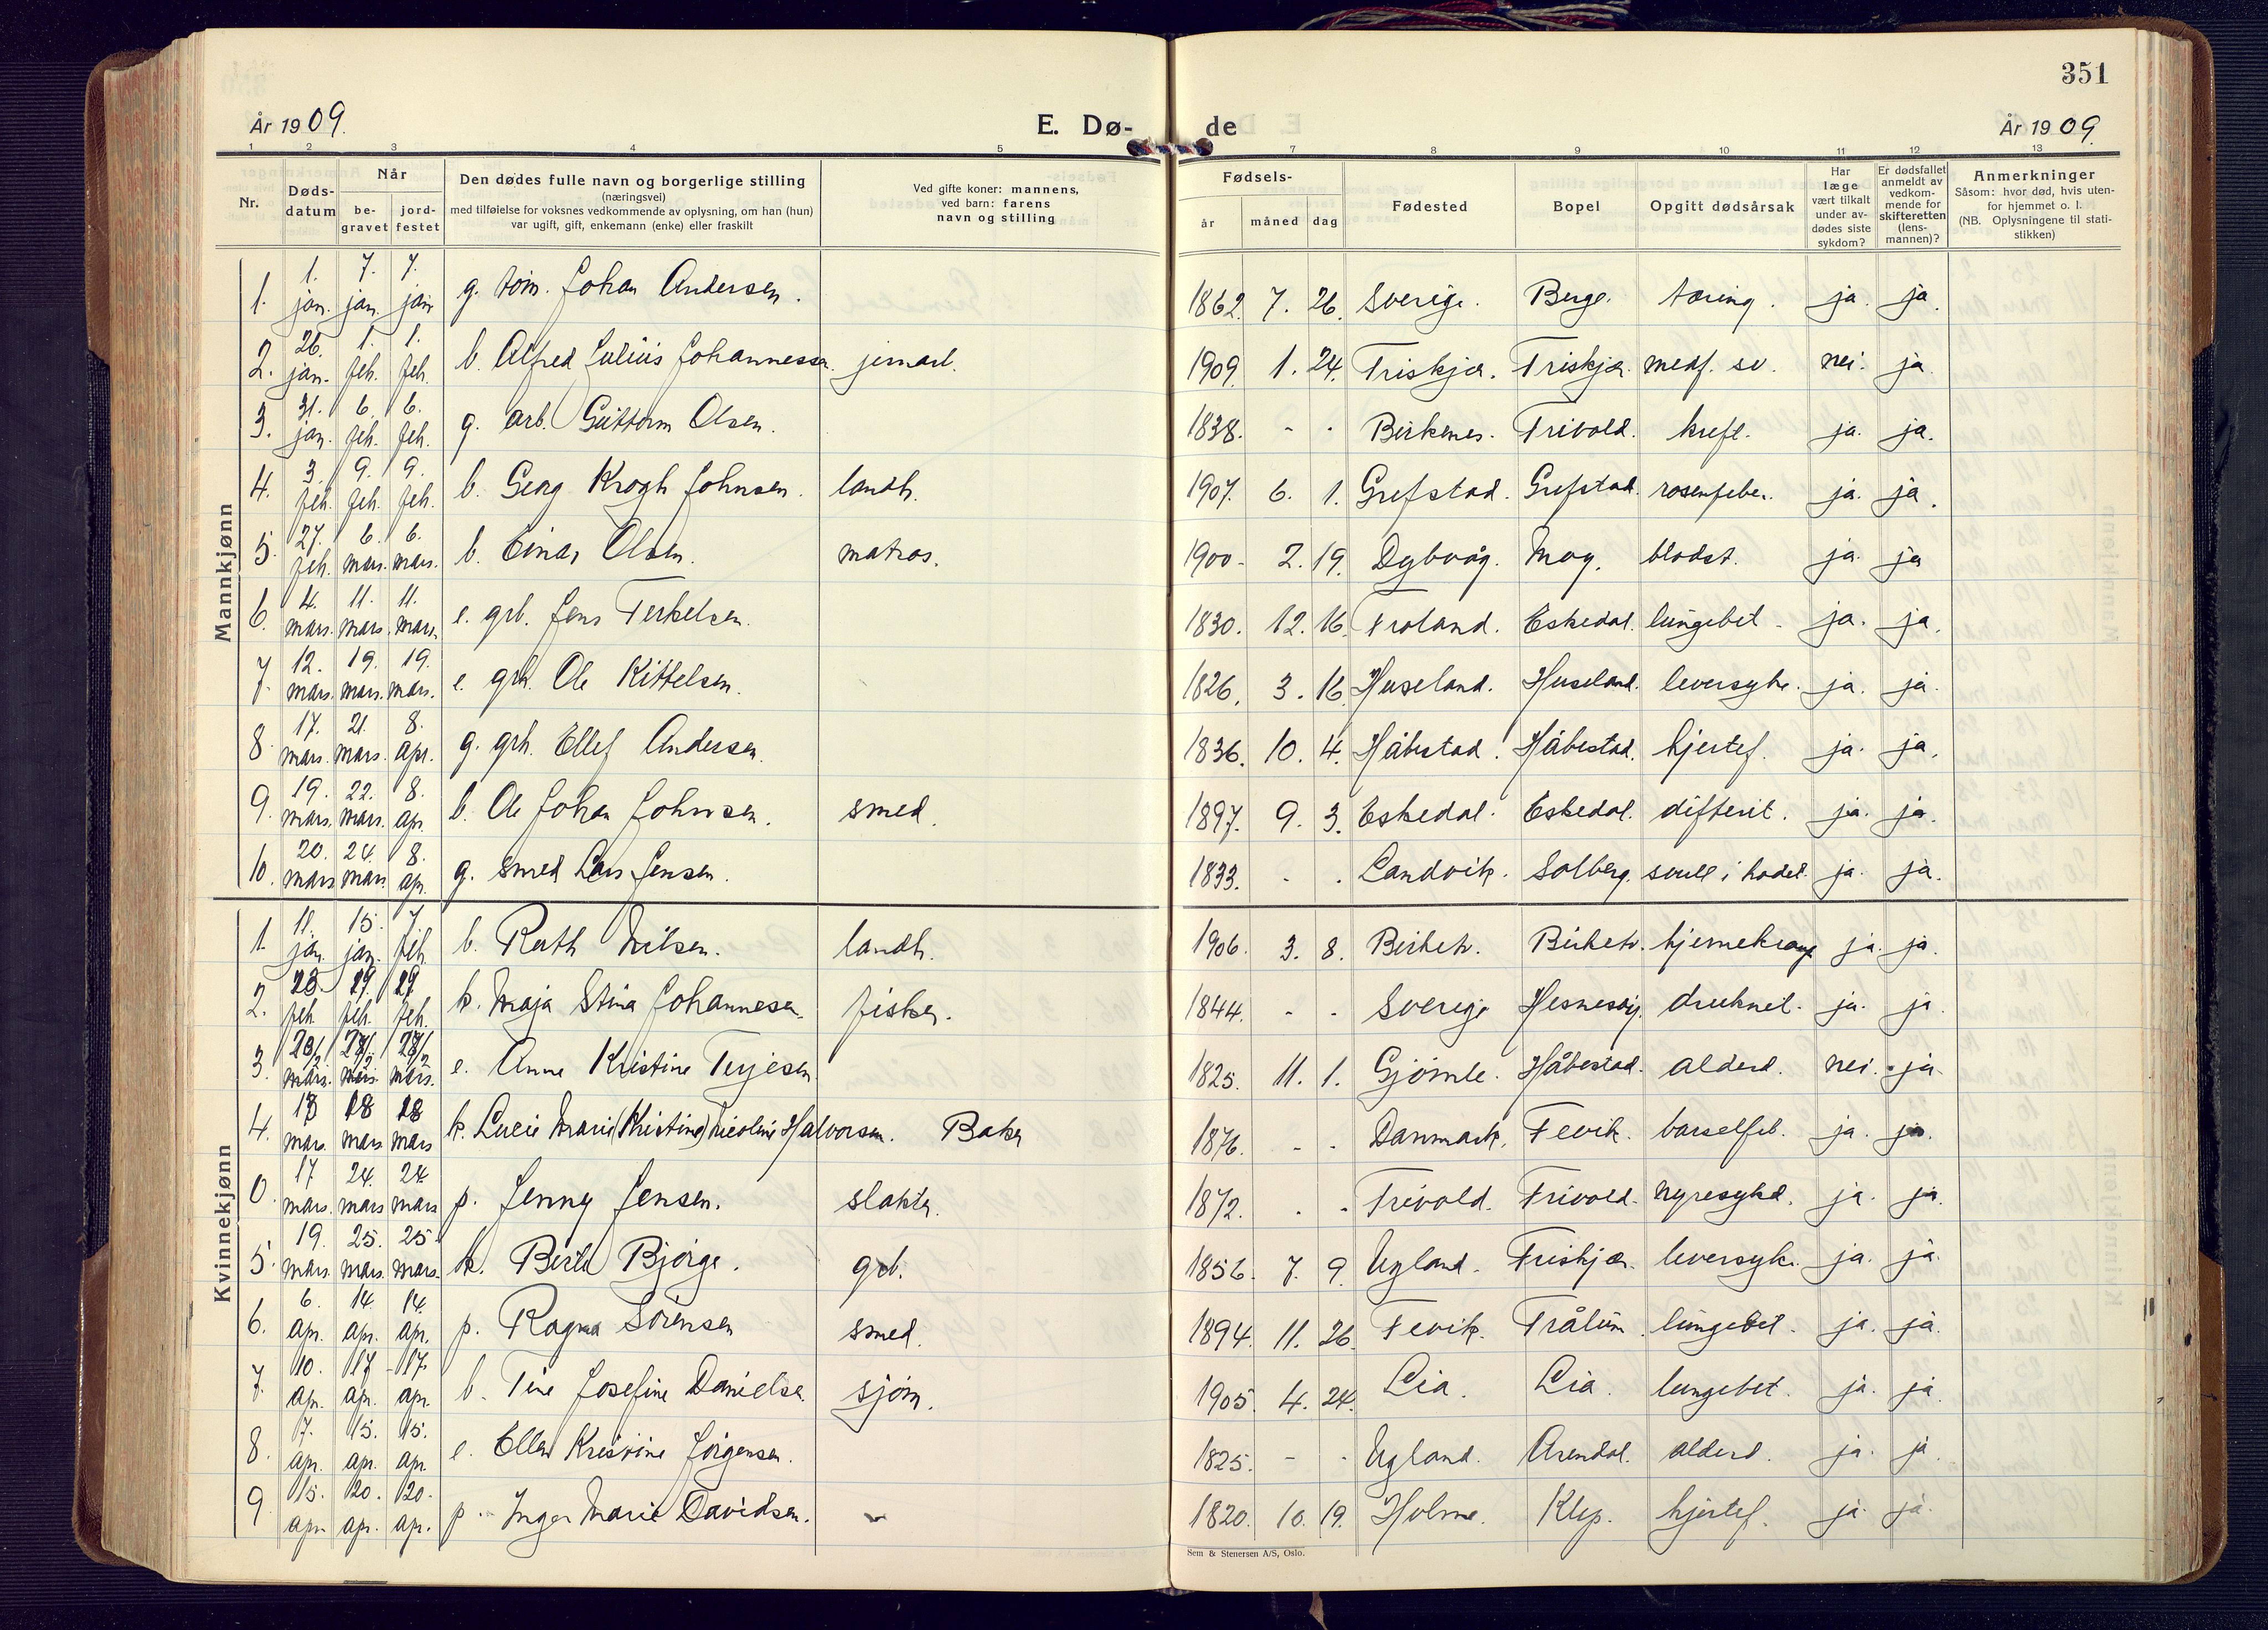 351
År 1909.
E. Dø-
de
År 1909.
1 2 3 4 5 7 8 9 10 11 12 13
Nr.
Døds-
datum
Når
be-
gravet
jord-
festet
Den dødes fulle navn og borgerlige stilling
(næringsvei)
med tilføielse for voksnes vedkommende av oplysning, om han (hun)
var ugift, gift, enkemann (enke) eller fraskilt
Ved gifte koner: mannens,
ved barn: farens
navn og stilling
Fødsels-
år måned dag
Fødested
Bopel
Opgitt dødsårsak
Har
læge
vært tilkalt
under av-
dødes siste
sykdom?
Er dødsfallet
anmeldt av
vedkom-
mende for
skifteretten
(lens-
mannen)?
Anmerkninger
Såsom: hvor død, hvis uten-
for hjemmet o. l.
(NB. Oplysningene til stati-
stikken)
Mannkjønn
1. 1. jan. 7. jan. 7. jan. g. tøm. Johan Andersen. 1862. 7. 26. Sverige. Berge. tæring. ja. ja.
2. 26. jan. 1. feb. 1. feb. b. Alfred Julius Johannessen. jernarb. 1909. 1. 24. Triskjær. Triskjær. medf. sv. nei. ja.
3. 31. jan. 6. feb. 6. feb. g. arb. Guttorm Olsen. 1838. - - Birkenes. Trivold. kreft. ja. ja.
4. 3. feb. 9. feb. 9. feb. b. Georg Krogh Johnsen. landh. 1907. 6. 1. Grefstad. Grefstad. rosenfeber. ja. ja.
5. 27. feb. 6. mars. 6. mars. b. Einar Olsen. matros. 1900. 2. 19. Dybvåg. Moy. blodst. ja. ja
6. 4. mars. 11. mars. 11. mars. e. grb. Jens Terkelsen. 1830. 12. 16. Froland. Eskedal. lungebet. ja. ja.
7. 12. mars. 19. mars. 19. mars. e. grb. Ole Kittelsen. 1826. 3. 16. Huseland. Huseland. leversyke. ja. ja.
8. 17. mars. 21. mars. 8. apr. g. grb. Ellef Andersen. 1836. 10. 4. Håbestad. Håbestad. hjertef. ja. ja.
9. 19. mars. 22. mars. 8. ap. b. Ole Johan Johnsen. smed. 1897. 9. 3. Eskedal. Eskedal. difterit. ja. ja.
10. 20. mars 24. mars 8. ap. g. smed Lars Jensen. 1833. - . Landvik. Solberg. svull i hodet. ja. ja.
Kvinnekjønn
1. 11. jan. 15. jan. 7. feb. b. Ruth Nilsen. landh. 1906. 3. 8. Birket. Birket. hjernekrampe ja. ja.
2. feb. feb. feb. k. Maja Stina Johannesen. fisker. 1844. - - Sverige Hesnesøy. druknet. ja. ja
3. mars. mars. mars. e. Anne Kristine Terjesen. 1825. 11. 1. Gjømle. Håbestad. alderd. nei. ja.
4. mars. mars mars k. Lucie Marie (Kristine) Nicoline Halvorsen. Baker 1876. - - Danmark. Fevik. barselfeb. ja. ja.
0. 17 mars. 24. mars 24 mars p. Jenny Jensen. slakter. 1872. . - Trivold. Trivold. nyresykd. ja. ja.
5. 19. mars. 25. mars. 25 mars. k. Berte Bjørge. grb. 1856. 7. 9. Ugland. Triskjær. leversyk. ja. ja.
6. 6. apr. 14. apr. 14. apr. p. Ragna Sørensen smed. 1894. 11. 26. Fevik. Trålum. lungebet. ja. ja.
7. 10. ap. 17 ap. 17. apr. b. Tine Josefine Danielsen. sjøm. 1905. 4. 24. Lia. Lia. lungebet. ja. ja
8. 7. ap. 15. ap. 15. ap. e. Ellen Kristine Jørgensen. 1825. - - Ugland. Arendal. alderd. ja. ja.
9 15. apr. 20. ap. 20. ap. p. Inger Marie Davidsen. 1820. 10. 19. Holme. Klep. hjertef. ja. ja.
Sem & Stenersen A/S, Oslo.